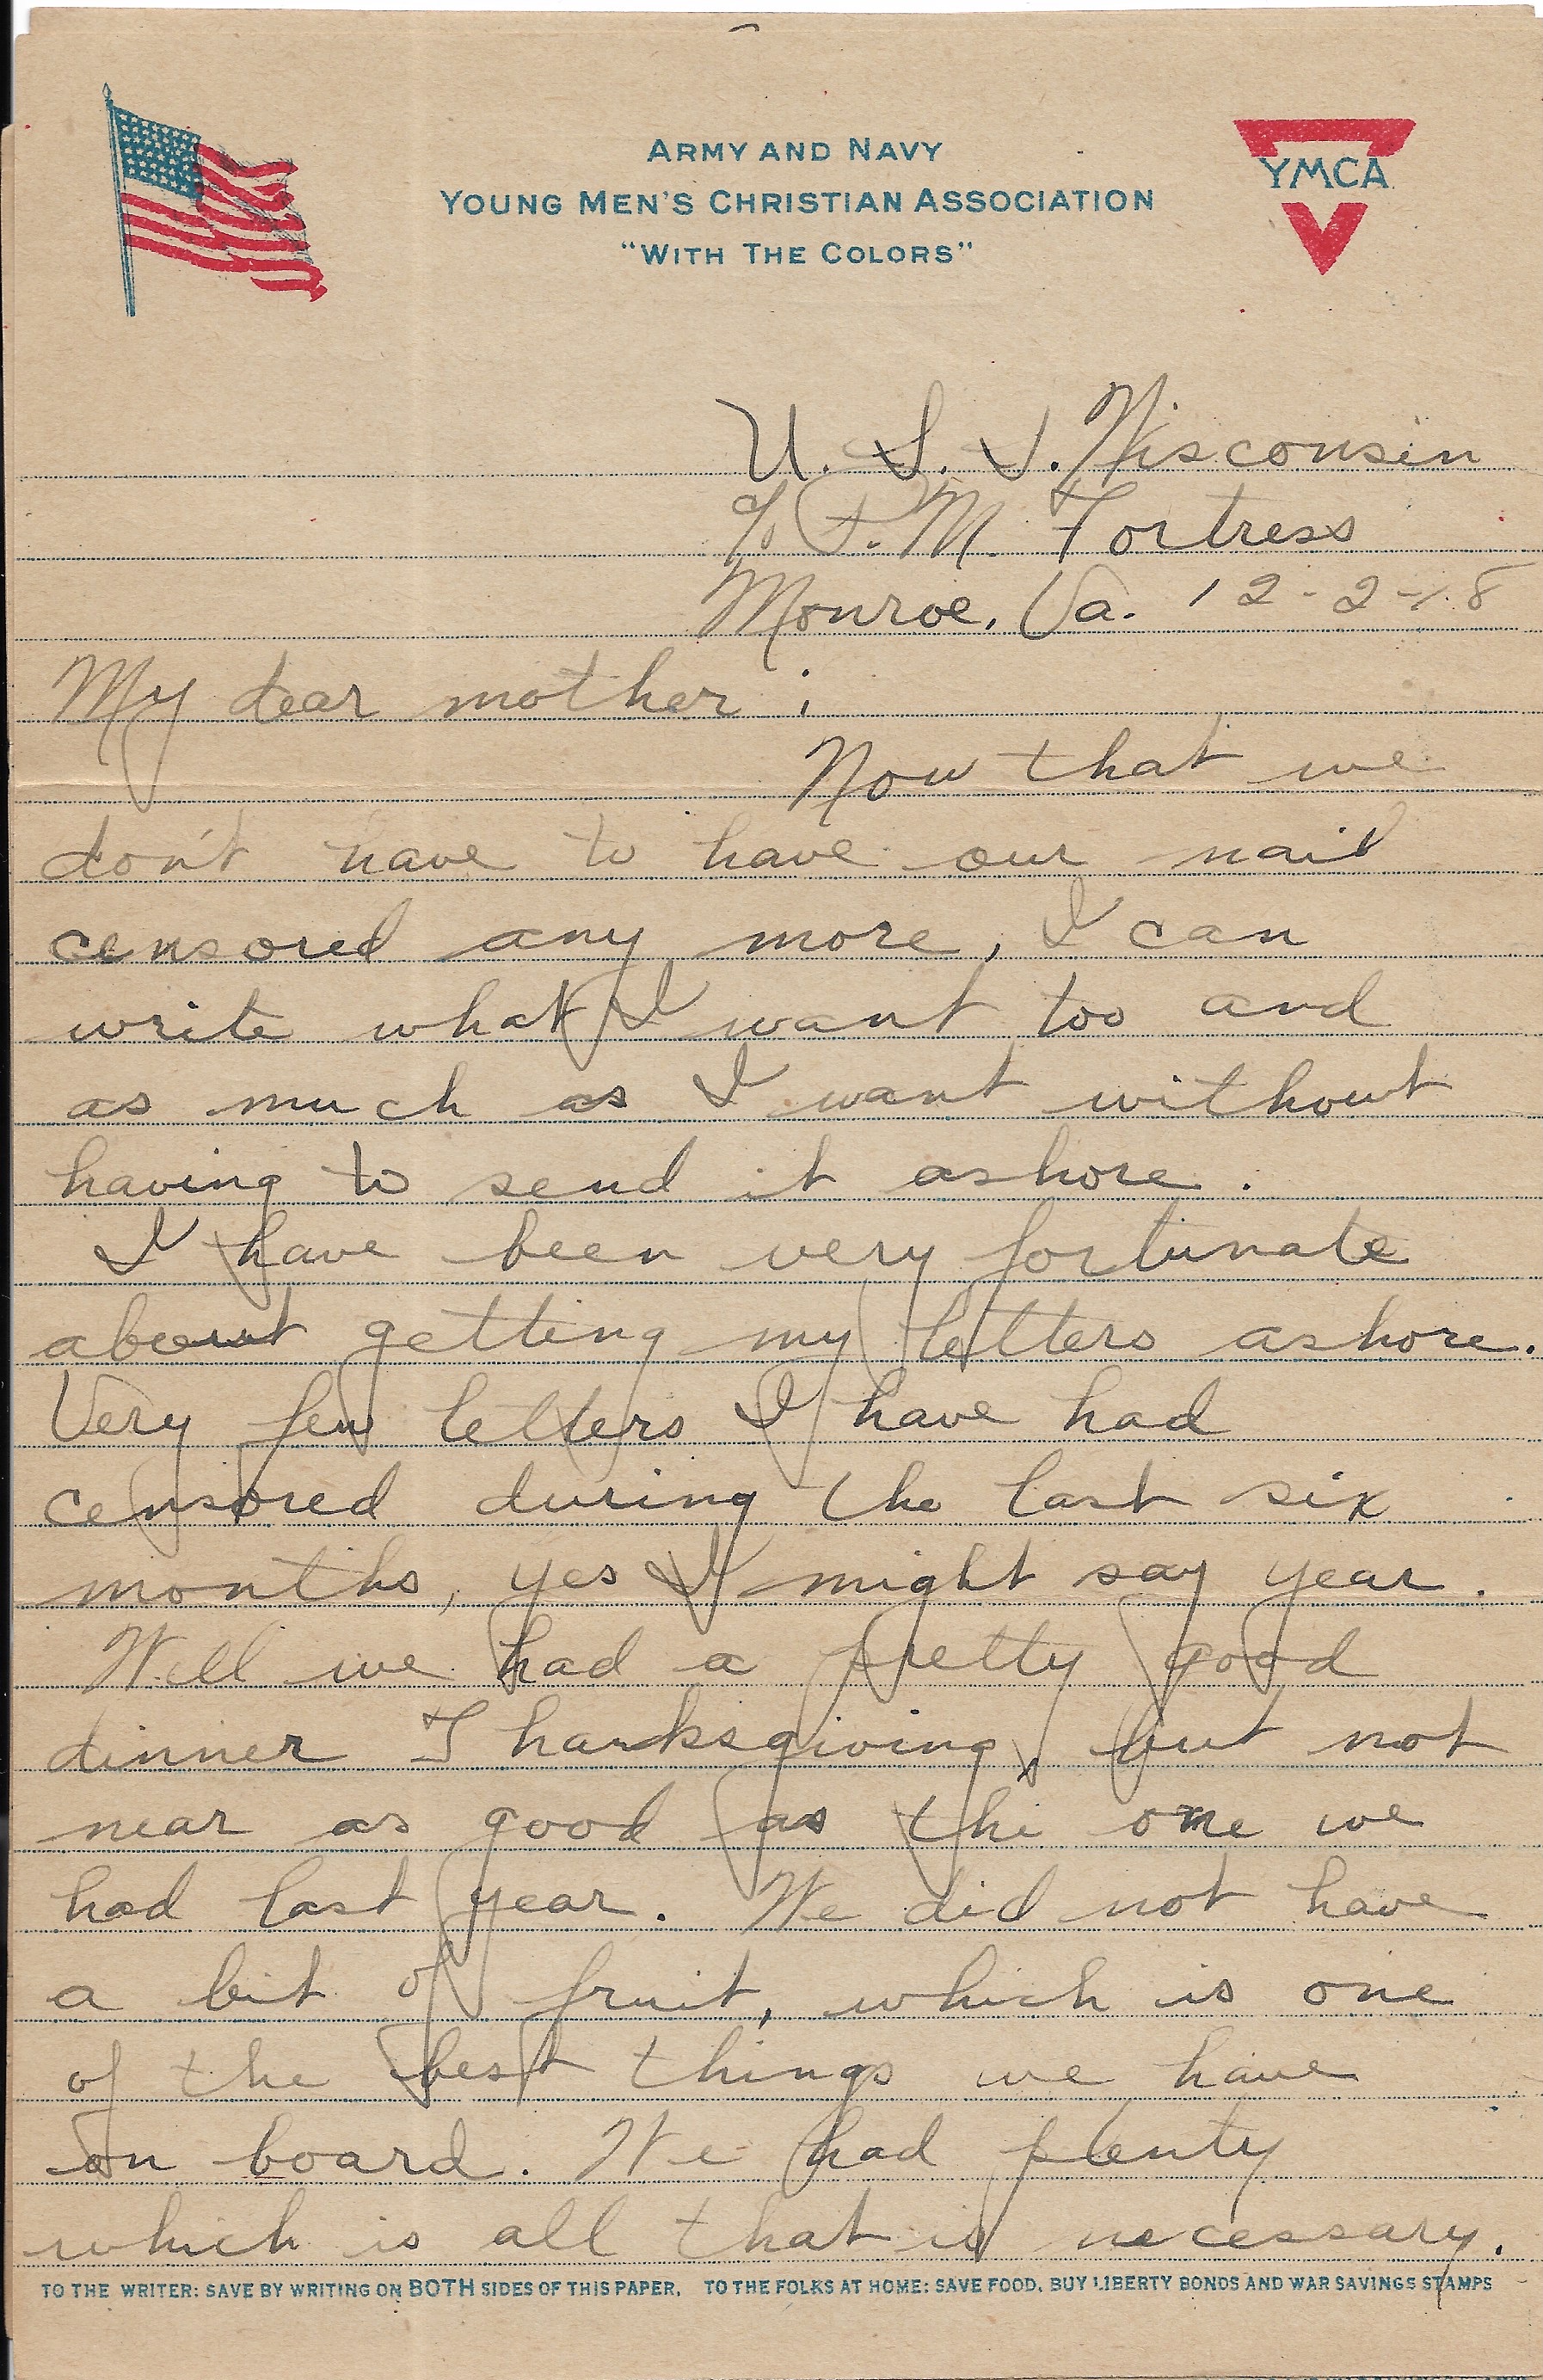 ARMY AND NAVY
YOUNG MEN'S CHRISTIAN ASSOCIATION
"WITH THE COLORS"
YMCA
U. S. S. Wisconsin
℅ P. M. Fortress
Monroe, Va. 12-2-18
My dear mother;
Now that we
don't have to have our mail
censored any more, I can
write what I want too and
as much as I want without
having to send it ashore.
I have been very fortunate
about getting my letters ashore.
Very few letters I have had
censored during the last six
months, yes I might say year.
Well we had a pretty good
dinner Thanksgiving, but not
near as good as the one we
had last year. We did not have
a bit of fruit, which is one
of the best things we have
on board. We had plenty
which is all that is necessary.
TO THE WRITER: SAVE BY WRITING ON BOTH SIDES OF THIS PAPER. TO THE FOLKS AT HOME: SAVE FOOD, BUY LIBERTY BONDS AND WAR SAVINGS STAMPS